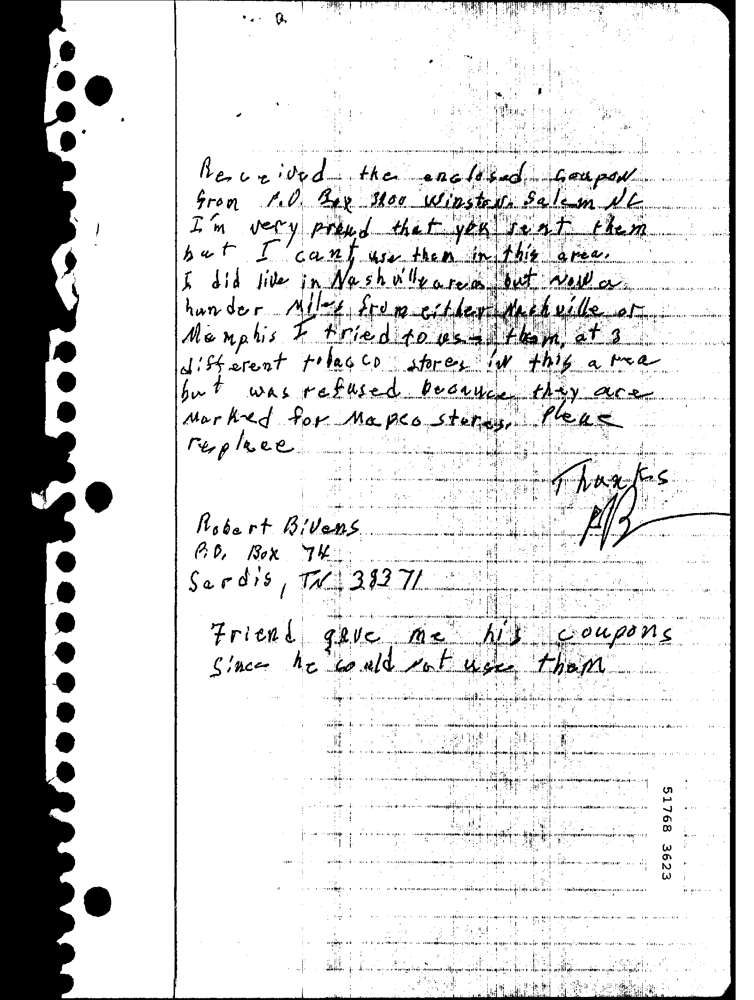 Resceived the enclosed Coupon
from P.O. Box 3100 Winston. Salem NC
I'm very proud that you sent them
but I cant use them in this area.
I did live in Nashville area but now a
hunder Miles from either Nashville or
Memphis I tried to use them, at 3
different tobacco stores in this area
but was refused because they are
Marked for Mapco stores. Please
replace
Thanks
RB
Robert Bivens
P.O. Box 74
Sardis, TN 38371
Friend gave me his coupons
Since he could not use them
51768 3623